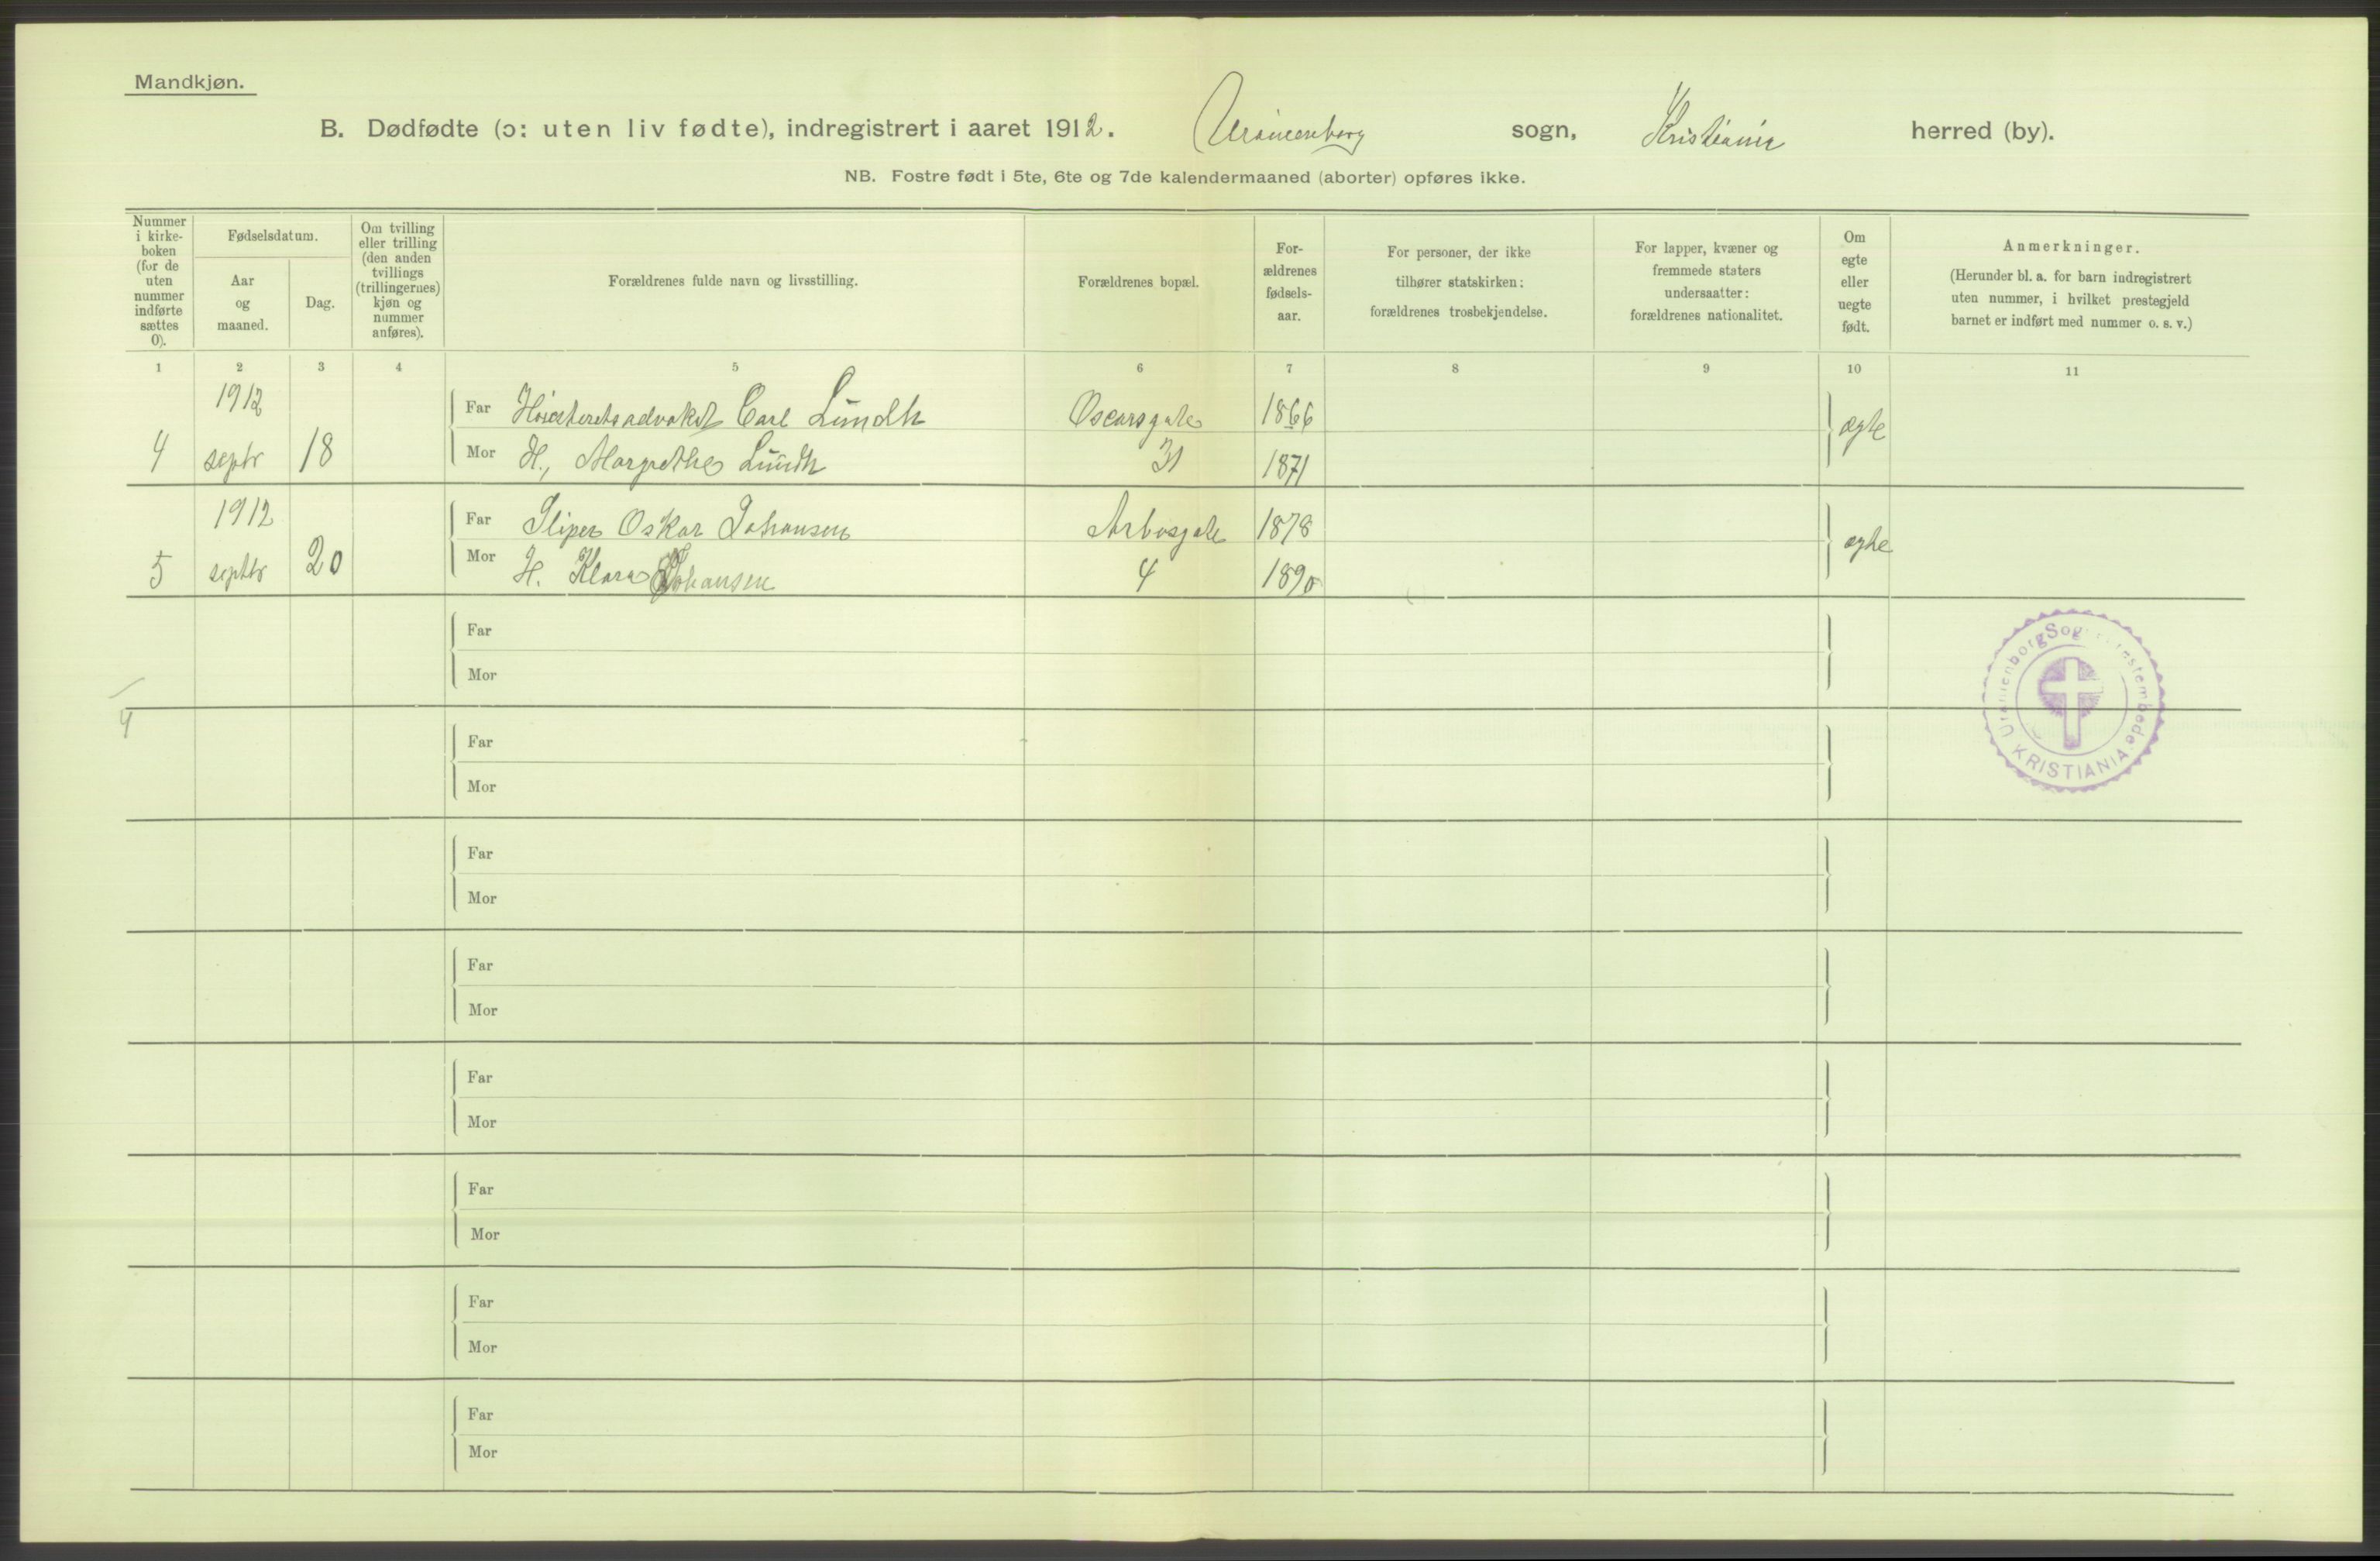 Mandkjøn.
B. Dødfødte (ɔ: uten liv fødte), indregistrert i aaret 1912. Uranienborg sogn, Kristiania herred (by).
NB. Fostre født i 5te, 6te og 7de kalendermaaned (aborter) opføres ikke.
Nummer
i kirke-
boken
(for de
uten
nummer
indførte
sættes
0).
Fødselsdatum.
Aar
og
maaned.
Dag.
Om tvilling
eller trilling
(den anden
tvillings
(trillingernes)
kjøn og
nummer
anføres).
Forældrenes fulde navn og livsstilling.
Forældrenes bopæl.
For-
ældrenes
fødsels-
aar.
For personer, der ikke
tilhører statskirken:
forældrenes trosbekjendelse.
For lapper, kvæner og
fremmede staters
undersaatter:
forældrenes nationalitet.
Om
egte
eller
uegte
født.
Anmerkninger.
(Herunder bl. a. for barn indregistrert
uten nummer, i hvilket prestegjeld
barnet er indført med nummer o. s. v.)
1 2 3 4 5 6 7 8 9 10 11
1912 Far Høiesteretsadvokat Carl Lundh Oscarsgate 1866
4 septr 18 Mor H., Margrethe Lundh 31 1871 ægte
1912 Far Sliper Oskar Johansen Arbosgate 1878
5 septbr 20 Mor H. Klara Johansen 4 1890 egte
Far
Mor
4
Far
Mor
Far
Mor
Far
Mor
Far
Mor
Far
Mor
Far
Mor
Far
Mor
Uranienborg Sogneprestembede.
KRISTIANIA